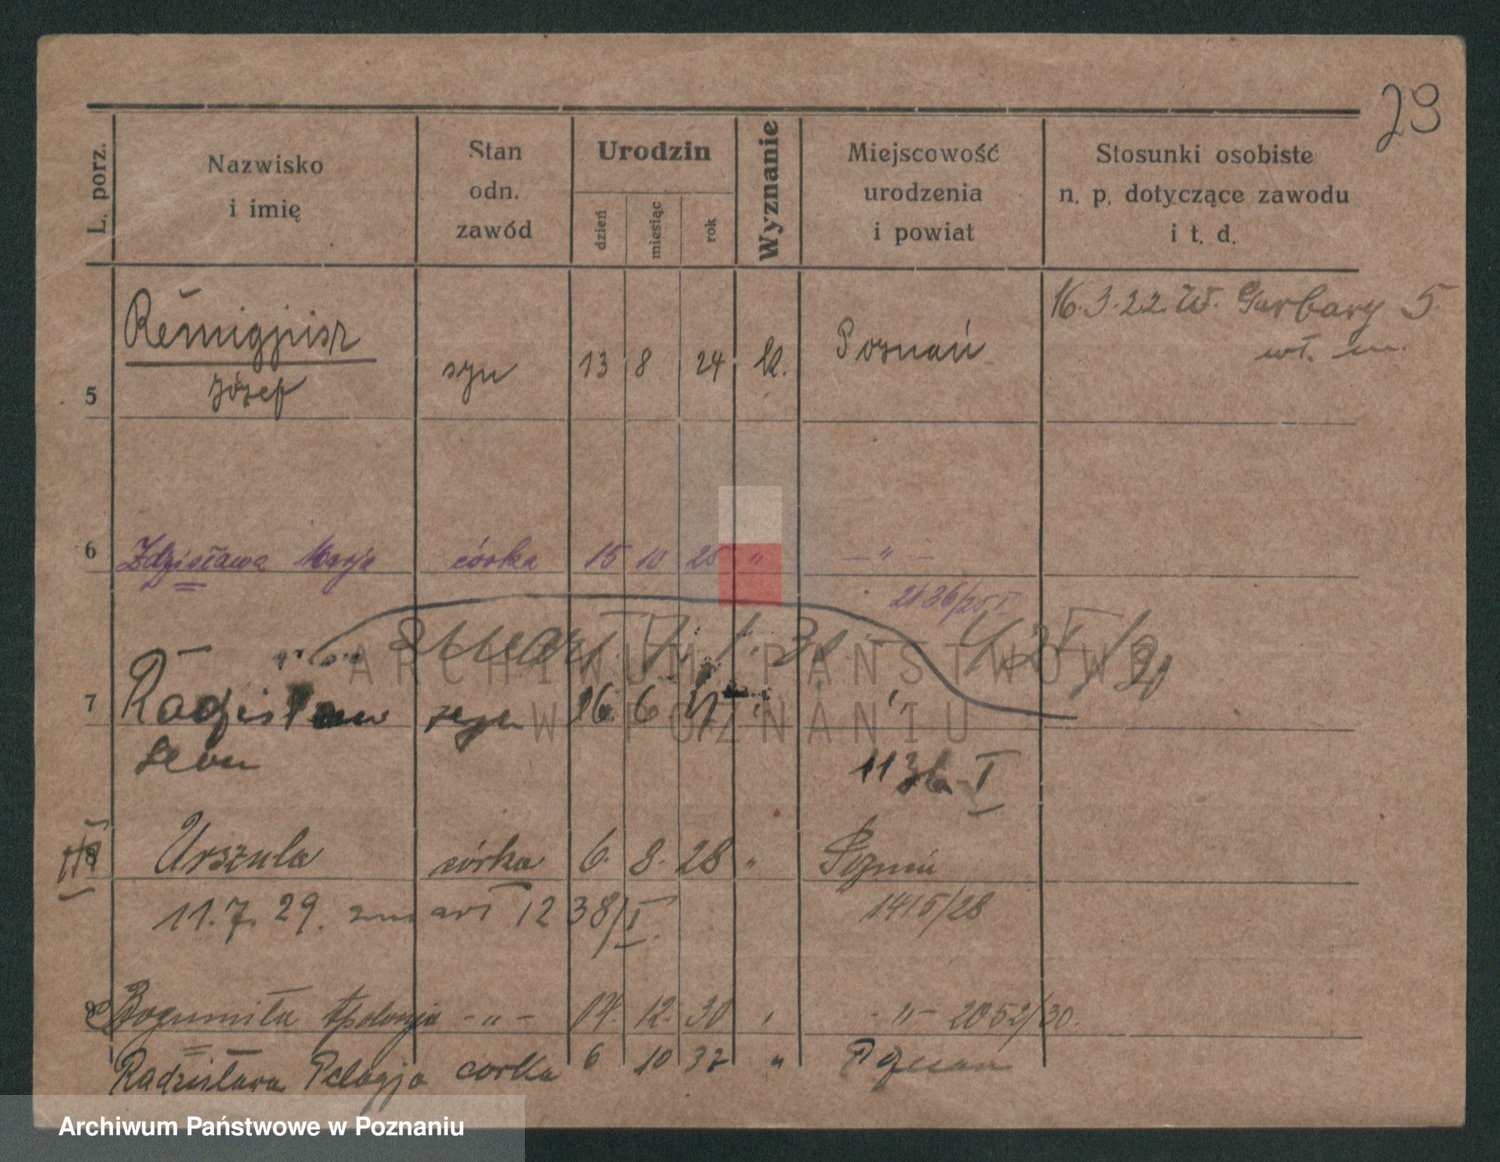 29
L. porz.
Nazwisko
i imię
Stan
odn.
zawód
Urodzin
dzień
miesiąc
rok
Wyznanie
Miejscowość
urodzenia
i powiat
Stosunki osobiste
n. p. dotyczące zawodu
i t. d.
16.3.22. W. Garbary 5.
Remigjusz
Józef
5 syn 13 8 24 Poznań
6 Zdzisława Marja córka 15 10 25 " — " —
2136/25 I
ARCHIWUM PAŃSTWOWE
W POZNANIU
7 Radzisław 16. 6
1136 I
8 Urszula córka 6. 8. 28 "
11.7.29. zm art 1238/I.
1415/28
9 Bogumiła Apolonja - " - 14. 12. 30 " - " - 2052/30.
Radzisława Pelagja corka 6 10 32 " Poznan
Archiwum Państwowe w Poznaniu